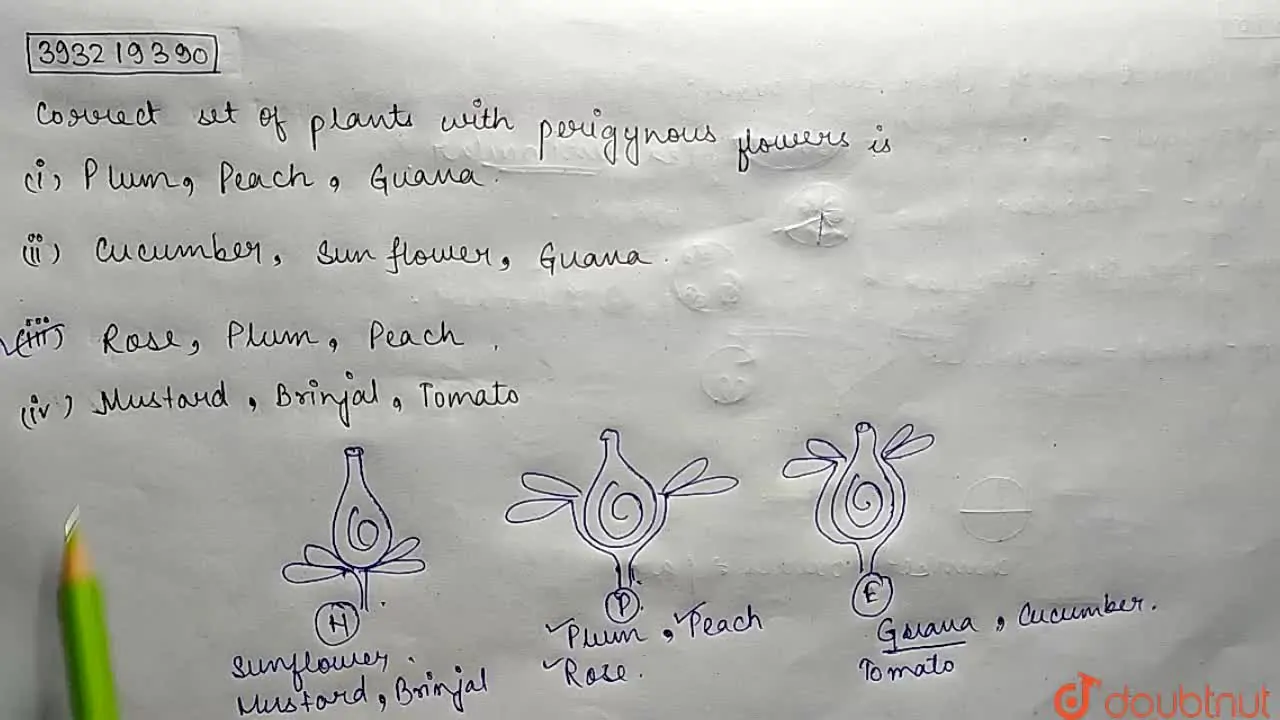 393219390
Correct set of plants with perigynous flowers is
(i) Plum, Peach, Guava.
(ii) Cucumber, Sunflower, Guava.
(iii) Rose, Plum, Peach.
(iv) Mustard, Brinjal, Tomato
H P E
Sunflower.
Mustard, Brinjal
Plum, Peach
Rose.
Guava, Cucumber.
Tomato
doubtnut